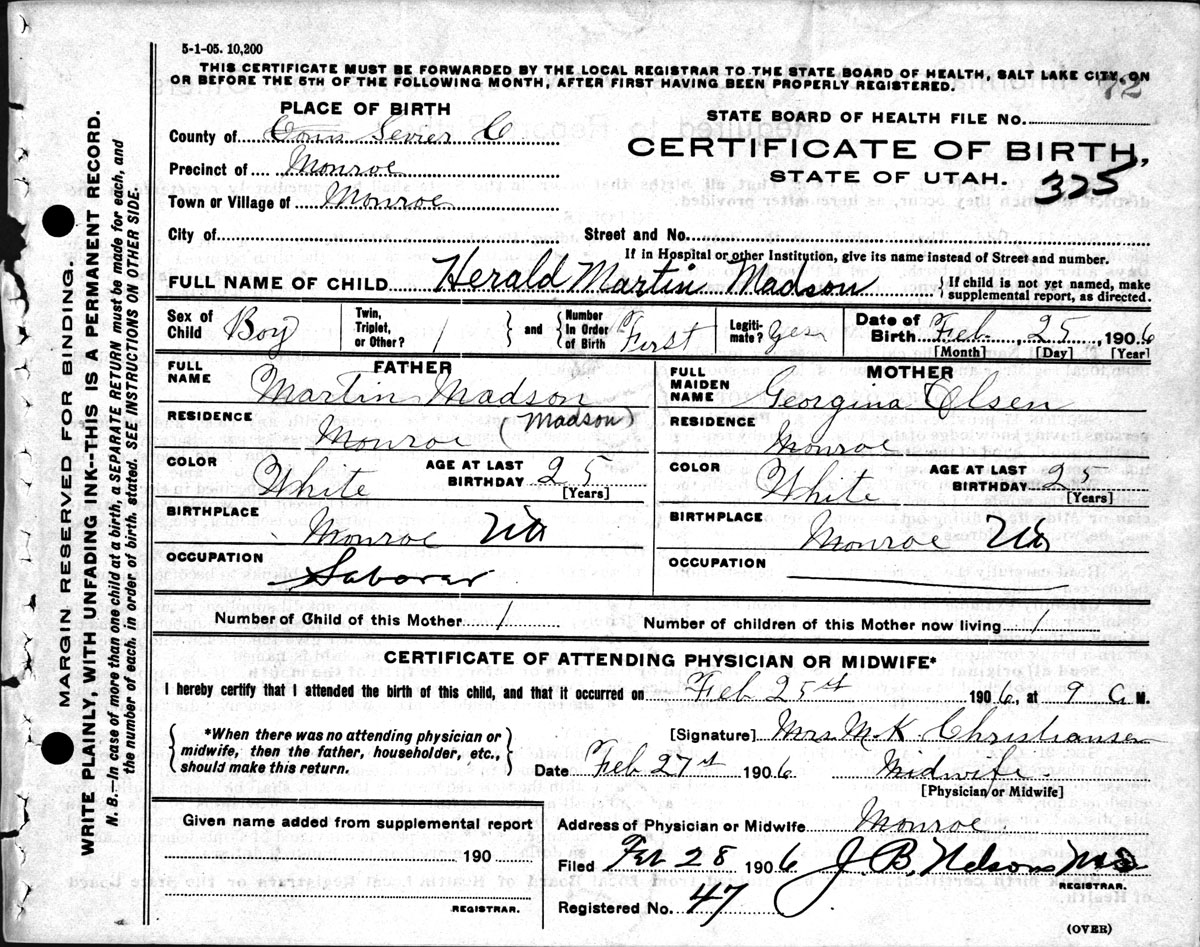 5-1-05. 10,200
THIS CERTIFICATE MUST BE FORWARDED BY THE LOCAL REGISTRAR TO THE STATE BOARD OF HEALTH, SALT LAKE CITY, ON
OR BEFORE THE 5TH OF THE FOLLOWING MONTH, AFTER FIRST HAVING BEEN PROPERLY REGISTERED.
72
PLACE OF BIRTH
STATE BOARD OF HEALTH FILE No.
County of Sevier C
CERTIFICATE OF BIRTH,
Precinct of Monroe
STATE OF UTAH. 325
Town or Village of Monroe
City of Street and No.
If in Hospital or other Institution, give its name instead of Street and number.
FULL NAME OF CHILD Herald Martin Madson { If child is not yet named, make supplemental report, as directed.
Sex of Child Boy Twin, Triplet, or Other? / } and { Number In Order of Birth First Legiti-mate? Yes Date of Birth Feb. 25, 1906
[Month] [Day] [Year]
FATHER MOTHER
FULL NAME Martin Madson FULL MAIDEN NAME Georgina Olsen
RESIDENCE Monroe (Madson) RESIDENCE Monroe
COLOR White AGE AT LAST BIRTHDAY 25 [Years] COLOR White AGE AT LAST BIRTHDAY 25 [Years]
BIRTHPLACE Monroe Uta BIRTHPLACE Monroe Uta
OCCUPATION Laborar OCCUPATION
Number of Child of this Mother 1 Number of children of this Mother now living 1
CERTIFICATE OF ATTENDING PHYSICIAN OR MIDWIFE*
I hereby certify that I attended the birth of this child, and that it occurred on Feb 25st 1906, at 9 a M.
{ *When there was no attending physician or midwife, then the father, householder, etc., should make this return. }
[Signature] Mrs M. K Christiansen
Date Feb 27st 1906 Midwife
[Physician or Midwife]
Given name added from supplemental report
Address of Physician or Midwife Monroe.
190
Filed Feb 28 1906 J. B. Nelson
REGISTRAR.
REGISTRAR.
Registered No. 47
(OVER)
MARGIN RESERVED FOR BINDING
WRITE PLAINLY, WITH UNFADING INK--THIS IS A PERMANENT RECORD.
N. B.—In case of more than one child at a birth, a SEPARATE RETURN must be made for each, and
the number of each, in order of birth, stated. SEE INSTRUCTIONS ON OTHER SIDE.